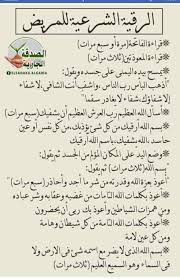 الرقية الشرعية للمريض
الصدقة
الجارية
ELSADAKA ELGARIA
*قراءة الفاتحة(مرة أو سبع مرات)
*قراءة المعوذتين(ثلاث مرات)
*يمسح بيده اليمنى على جسده ويقول:
أذهب الباس رب الناس، واشف أنت الشافي،لاشفاء
إلا شفاؤك،شفاء لايغادر سقما"
*أسأل الله العظيم رب العرش العظيم أن يشفيك(سبع مرات)
*بسم الله أرقيك من كل شئ يؤذيك،من كل نفس أو عين
حاسد،الله يشفيك،باسم الله أرقيك
*وضع اليد على المكان المؤلم من الجسد ثم يقول:
بسم الله(ثلاث مرات) ثم يقول:
"أعوذ بعزة الله وقدرته من شر ما أجد وأحاذر(سبع مرات)"
*أعوذ بكلمات الله التامات من غضبه وعقابه وشر عباده
ومن همزات الشياطين وأعوذ بك ربي أن يحضرون
*أعوذ بكلمات الله التامة من كل شيطان وهامة
ومن كل عين لامة
*بسم الله الذي لا يضر مع اسمه شئ فى الارض ولا
فى السماء وهو السميع العليم(ثلاث مرات)